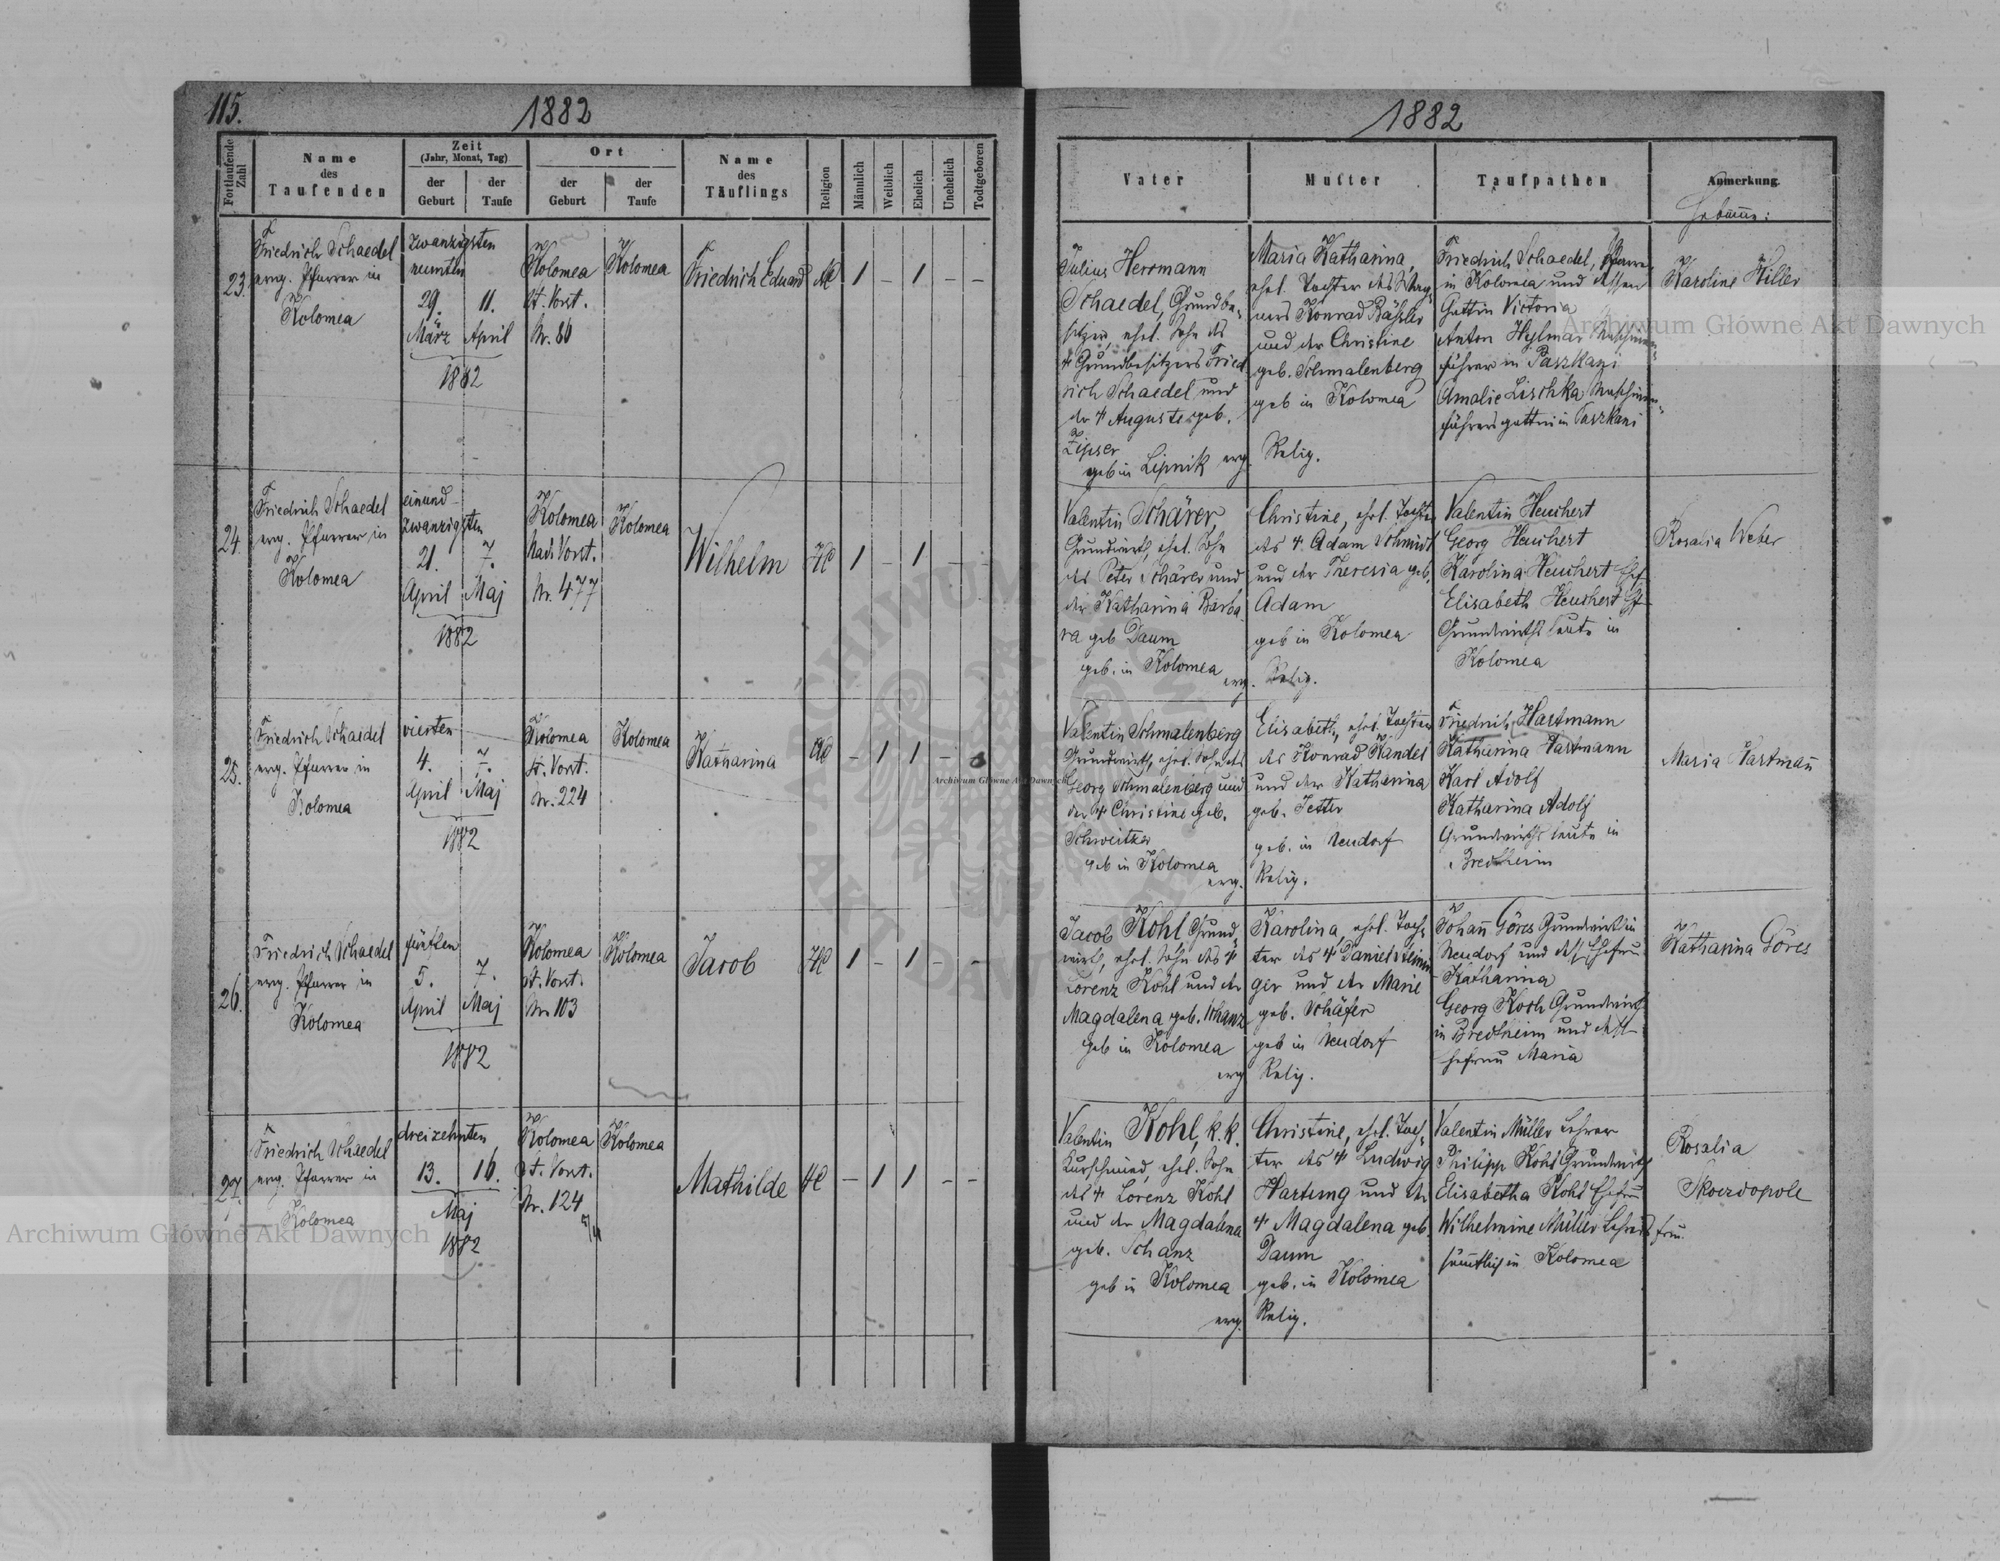 115.
1882
1882
Fortlaufende Zahl
Name
des
Taufenden
Zeit
(Jahr, Monat, Tag)
der
Geburt
der
Taufe
Ort
der
Geburt
der
Taufe
Name
des
Täuflings
Religion
Männlich
Weiblich
Ehelich
Unehelich
Todtgeboren
Vater
Mutter
Taufpathen
Anmerkung.
Hebamme:
23.
Friedrich Schaedel
evng. Pfarrer in
Kolomea
zwanzigsten
neunten
29. 11.
März April
1882
Kolomea
St. Vorst.
Nr. 86
Kolomea
Friedrich Eduard
AC
1 – 1 – –
Julius Herrmann
Schaedel, Grundbe-
sitzer, ehel. Sohn des
Grundbesitzers Fried
rich Schaedel und
der Auguste geb.
Zipser
geb in Lipnik evg.
Maria Katharina,
ehel. Tochter des
Konrad Bäßler
und der Christine
geb. Schmalenberg
geb in Kolomea
Relig.
Friedrich Schaedel, Pfarrer
in Kolomea und dessen
Gattin Victoria
Anton Hylmar Maschinen-
führer in Paszkani
Amalie Lischka Maschinen-
führersgattin in Paszkani
Karoline Hiller
24.
Friedrich Schaedel
evg. Pfarrer in
Kolomea
einund
zwanzigsten
21. 7.
April Maj
1882
Kolomea
Nad. Vorst.
Nr. 477
Kolomea
Wilhelm
HC
1 – 1 – –
Valentin Schärer,
Grundwirth, ehel. Sohn
des Peter Schärer und
der Katharina Barba-
ra geb Daum
geb. in Kolomea evg.
Christine, ehel. Tochter
des Adam Schmidt
und der Theresia geb.
Adam
geb in Kolomea
Relig.
Valentin Heuchert
Georg Heuchert
Karolina Heuchert
Elisabeth Heuchert
Grundwirthsleute in
Kolomea
Rosalia Weber
25.
Friedrich Schaedel
evg. Pfarrer in
Kolomea
vierten
4. 7.
April Maj
1882
Kolomea
St. Vorst.
Nr. 224
Kolomea
Katharina
AC
– 1 1 – –
Valentin Schmalenberg
Grundwirth, ehel. Sohn des
Georg Schmalenberg und
der Christine geb.
Schweitzer
geb in Kolomea
evg.
Elisabeth, ehel. Tochter
des Konrad Kandel
und der Katharina
geb. Jetter
geb. in Neudorf
Relig.
Friedrich Hartmann
Katharina Hartmann
Karl Adolf
Katharina Adolf
Grundwirthsleute in
Bredtheim
Maria Hartmañ
26.
Friedrich Schaedel
evg. Pfarrer in
Kolomea
fünften
5. 7.
April Maj
1882
Kolomea
St. Vorst.
Nr. 103
Kolomea
Jacob
HC
1 – 1 – –
Jacob Kohl Grund-
wirth, ehel. Sohn des
Lorenz Kohl und der
Magdalena geb. Schanz
geb in Kolomea
evg
Karolina, ehel. Toch-
ter des Daniel
ger und der Marie
geb. Schäfer
geb in Neudorf
Relig.
Johañ Göres Grundwirth in
Neudorf und dess Ehefrau
Katharina
Georg Koch Grundwirth
in Bredtheim und dess
Ehefrau Maria
Katharina Göres
27.
Friedrich Schaedel
evg. Pfarrer in
Kolomea
dreizehnten
13. 16.
Maj
1882
Kolomea
St. Vorst.
Nr. 124
Kolomea
Mathilde
HC
– 1 1 – –
Valentin Kohl, k. k.
Kurschmied, ehel. Sohn
des Lorenz Kohl
und der Magdalena
geb. Schanz
geb in Kolomea
evg.
Christine, ehel. Toch-
ter des Ludwig
Hartung und der
Magdalena geb.
Daum
geb. in Kolomea
Relig.
Valentin Müller Lehrer
Philipp Kohl Grundwirth
Elisabetha Kohl Ehefrau
Wilhelmine Müller Lehrersfrau.
sämtlich in Kolomea
Rosalia
Skoerdopole
Archiwum Główne Akt Dawnych
Archiwum Główne Akt Dawnych
Archiwum Główne Akt Dawnych